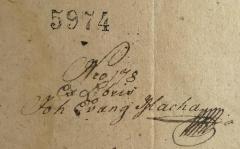 5974
Nro 178
Ex Libris
Joh Evang Hacha